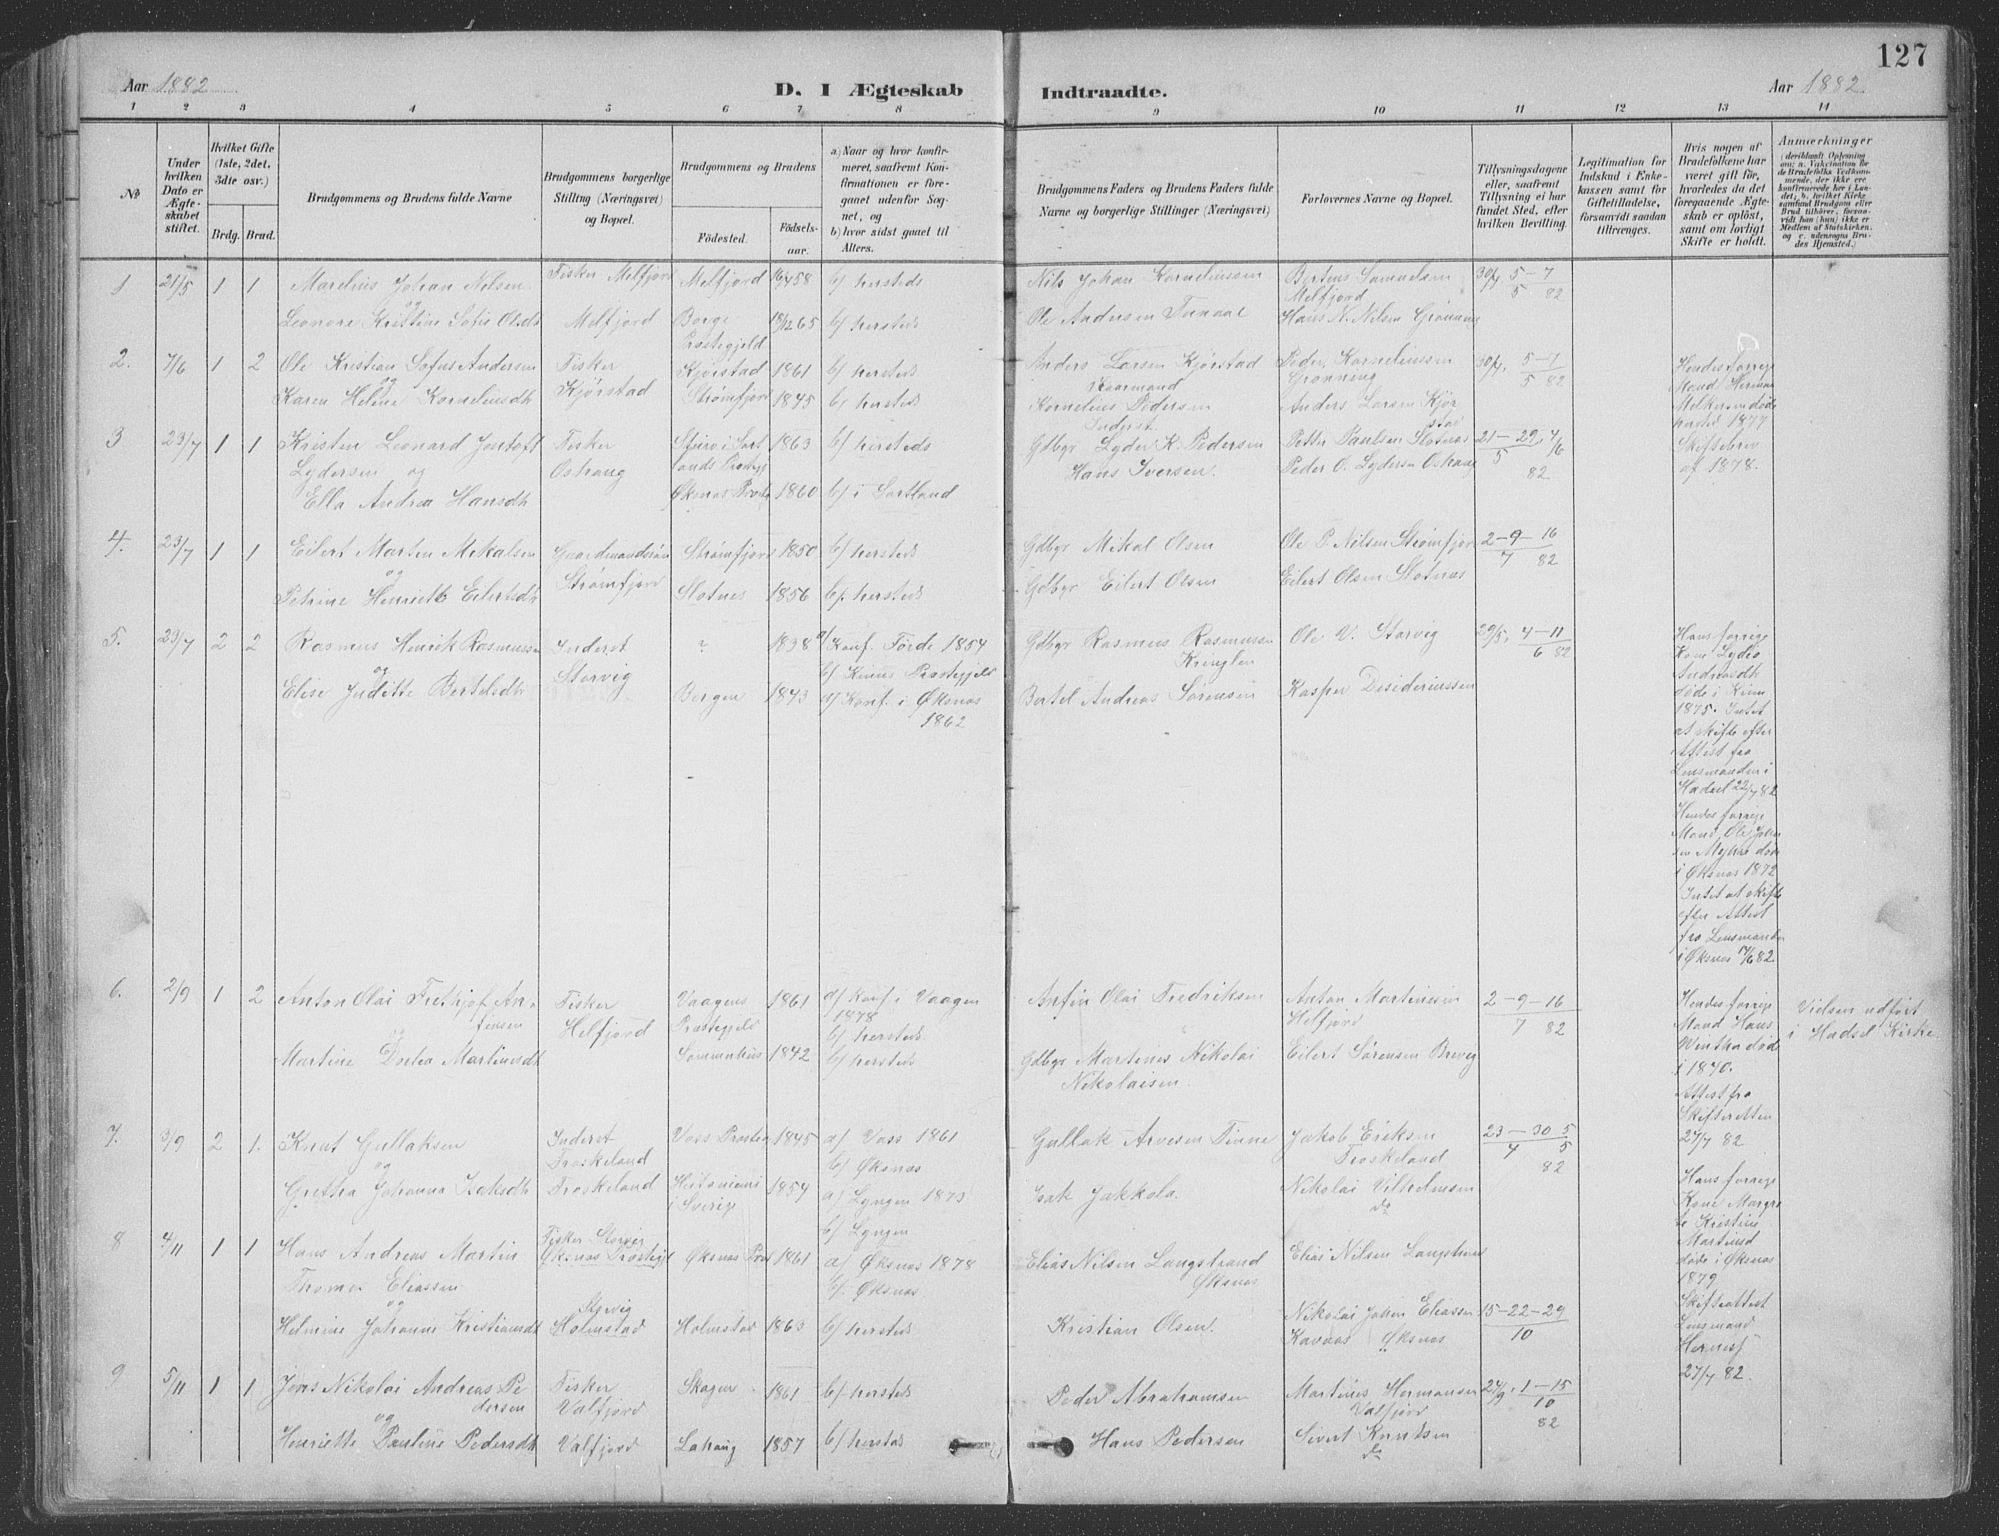 127
Aar 1882
D. I Ægteskab
Indtraadte.
Aar 1882.
1 2 3 4 5 6 7 8 9 10 11 12 13 14
No
Under hvilken Dato er Ægteskabet stiftet.
Hvilket Gifte (1ste, 2det, 3die osv.)
Brdg. Brud.
Brudgommens og Brudens fulde Navne
Brudgommens borgerlige Stilling (Næringsvei) og Bopæl.
Brudgommens og Brudens
Födested.
Födselsaar.
a) Naar og hvor konfirmeret, saafremt Konfirmationen er foregaaet udenfor Sognet, og
b) hvor sidst gaaet til Alters.
Brudgommens Faders og Brudens Faders fulde Navne og borgerlige Stillinger (Næringsvei)
Forlovernes Navne og Bopæl.
Tillysningsdagene eller, saafremt Tillysning ei har fundet Sted, efter hvilken Bevilling.
Legitimation for Indskud i Enkekassen samt for Giftetilladelse, forsaavidt saadan tiltrænges.
Hvis nogen af Brudefolkene har været gift før, hvorledes da det foregaaende Ægteskab er oplöst, samt om lovligt Skifte er holdt.
Anmærkninger
(deriblandt Oplysning om: a. Vakcination for de Brudefolks Vedkommende, der ikke ere konfirmerede her i Landet; b. hvilket Kirkesamfund Brudgom eller Brud tilhörer, forsaavidt han (hun) ikke er Medlem af Statskirken, og c. udensogns Brudes Hjemsted.)
1 21/5 1 1 Marelius Johan Nilsen Fisker Melfjord Melfjord 16/4 58 b/ hersteds Nils Johan Korneliussen Berteus Samuelsen 30/4 5-7
og Melfjord 5 82
Leonore Kristine Sofie Olsdt Melfjord Borge 18/12 65 b/ hersteds Ole Andersen Hans N. Nilsen Grønning
Præstegjeld
2. 7/6 1 2 Ole Kristian Sofus Andersen Fisker Kjørstad 1861 b/ hersteds Anders Larsen Kjørstad Peder Korneliussen 30/4, 5-7 Hendes forrige
og Kaarmand Grønning 5 82 Mand Herman
Karen Helene Kornelinsdt Kjørstad Strømfjord 1845 b/ hersteds Kornelius Pedersen Anders Larsen Kjør Melkersen døde
Inderst stad hersted 1877
3 23/7 1 1 Kristen Leonard Jentoft Fisker 1863 b/ hersteds Gdbgr Lyder K. Pedersen Petter Paulsen Slotnæs 21-29, 4/6 Skiftebrev
Lydersen og Oshaug Hans Iversen. Peder O. Lydersen Oshaug 5 82 af 1878.
Ella Andrea Hansdt Øksnæs 1860 b/ i Sortland
4. 23/7 1 1 Eilert Marten Mikalsen Gaardmandssøn Strømfjord 1850 b/ hersteds Gdbgr Mikal Olsen Ole P. Nilsen Strømfjord 2-9-16
og Strømfjord 7 82
Petrine Henriette Eilertsdt Slotnes 1856 b/ hersteds Gdbgr Eilert Olsen Eilert Olsen Slotnæs
5. 23/7 2 2 Rasmus Henrik Rasmussen Inderst ? 1838 a/ Konf. Førde 1854 Gdbgr Rasmus Rasmussen Ole V. Storvig 29/5, 4-11 Hans forrige
og Storvig b/ Kinns Præstegjeld Kringlen 6 82 Kone Lydia
Elise Juditte Bertelsdt Bergen 1843 a/ Konf. i Øksnæs Bertel Andreas Sørensen Kasper Desideriussen
1862
døde i Kinn
1875. Intet
at skifte efter
Attest fra
Lensmanden i
Hadsel 22/7 82
Hendes forrige
Mand, Ole
døde
i Øksnæs 1872
Intet at skifte
efter Attest
fra Lensmanden
i Øksnæs 17/6 82
6. 2/9 1 2 Anton Olai Frethjof An- Fisker Vaagens 1861 a/ Konf i Vaagen Anfin Olai Fredriksen Anton Martinesen 2-9-16 Hendes forrige Vielsen udført
finsen Helfjord Præstegjeld 1878 Helfjord 7 82 Mand Hans i Hadsel Kirke.
og b/ hersteds død
Martine Dortea Martinusdt 1842 b/ hersteds Gdbgr Martines Nikolai Eilert Sørensen Brevig i 1870.
Nikolaisen. Attest fra
Skifteretten
27/7 82
7. 3/9 2 1. Knut Gullaksen Inderst Voss Præsteg 1845 a/ Voss 1861 Gullak Arvesen Jakob Eriksen 23-30 5
og Froskeland b/ Øksnæs Froskeland 4 5
Gretha Johanna Isaksdt Froskeland i Sverige 1854 a/ Lyngen 1873 Isak Jakkola. Nikolai Vilhelmsen 82 Hans forrige
b/ Lyngen do Kone Margre
te Kristine
8 4/11 1 1 Hans Andreas Martin Fisker Storvig Øksnæs 1861 a/ Øksnæs 1878 Elias Nilsen Langstrand Elias Nilsen Langstrand
Thomas Eliassen Øksnæs Præstegjd b/ Øksnæs Øksnæs døde i Øksnæs
og Storvig 1879
Helmine Johanne Kristiansdt Holmstad Holmstad 1863 b/ hersteds Kristian Olsen. Nikolai Johan Eliassen 15-22-29 Skifteattest
Øksnæs 10 Lensmand
27/7 82.
9 5/11 1 1 Jens Nikolai Andreas Pe Fisker Skagen 1861 b/ hersteds Peder Abrahamsen Martines Hermansen 24/9, 1-15
dersen Valfjord Valfjord 10
og 82
Henriette Pauline Pedersdt Valfjord 1857 b/ hersteds Hans Pedersen Sivert Knutsen
do